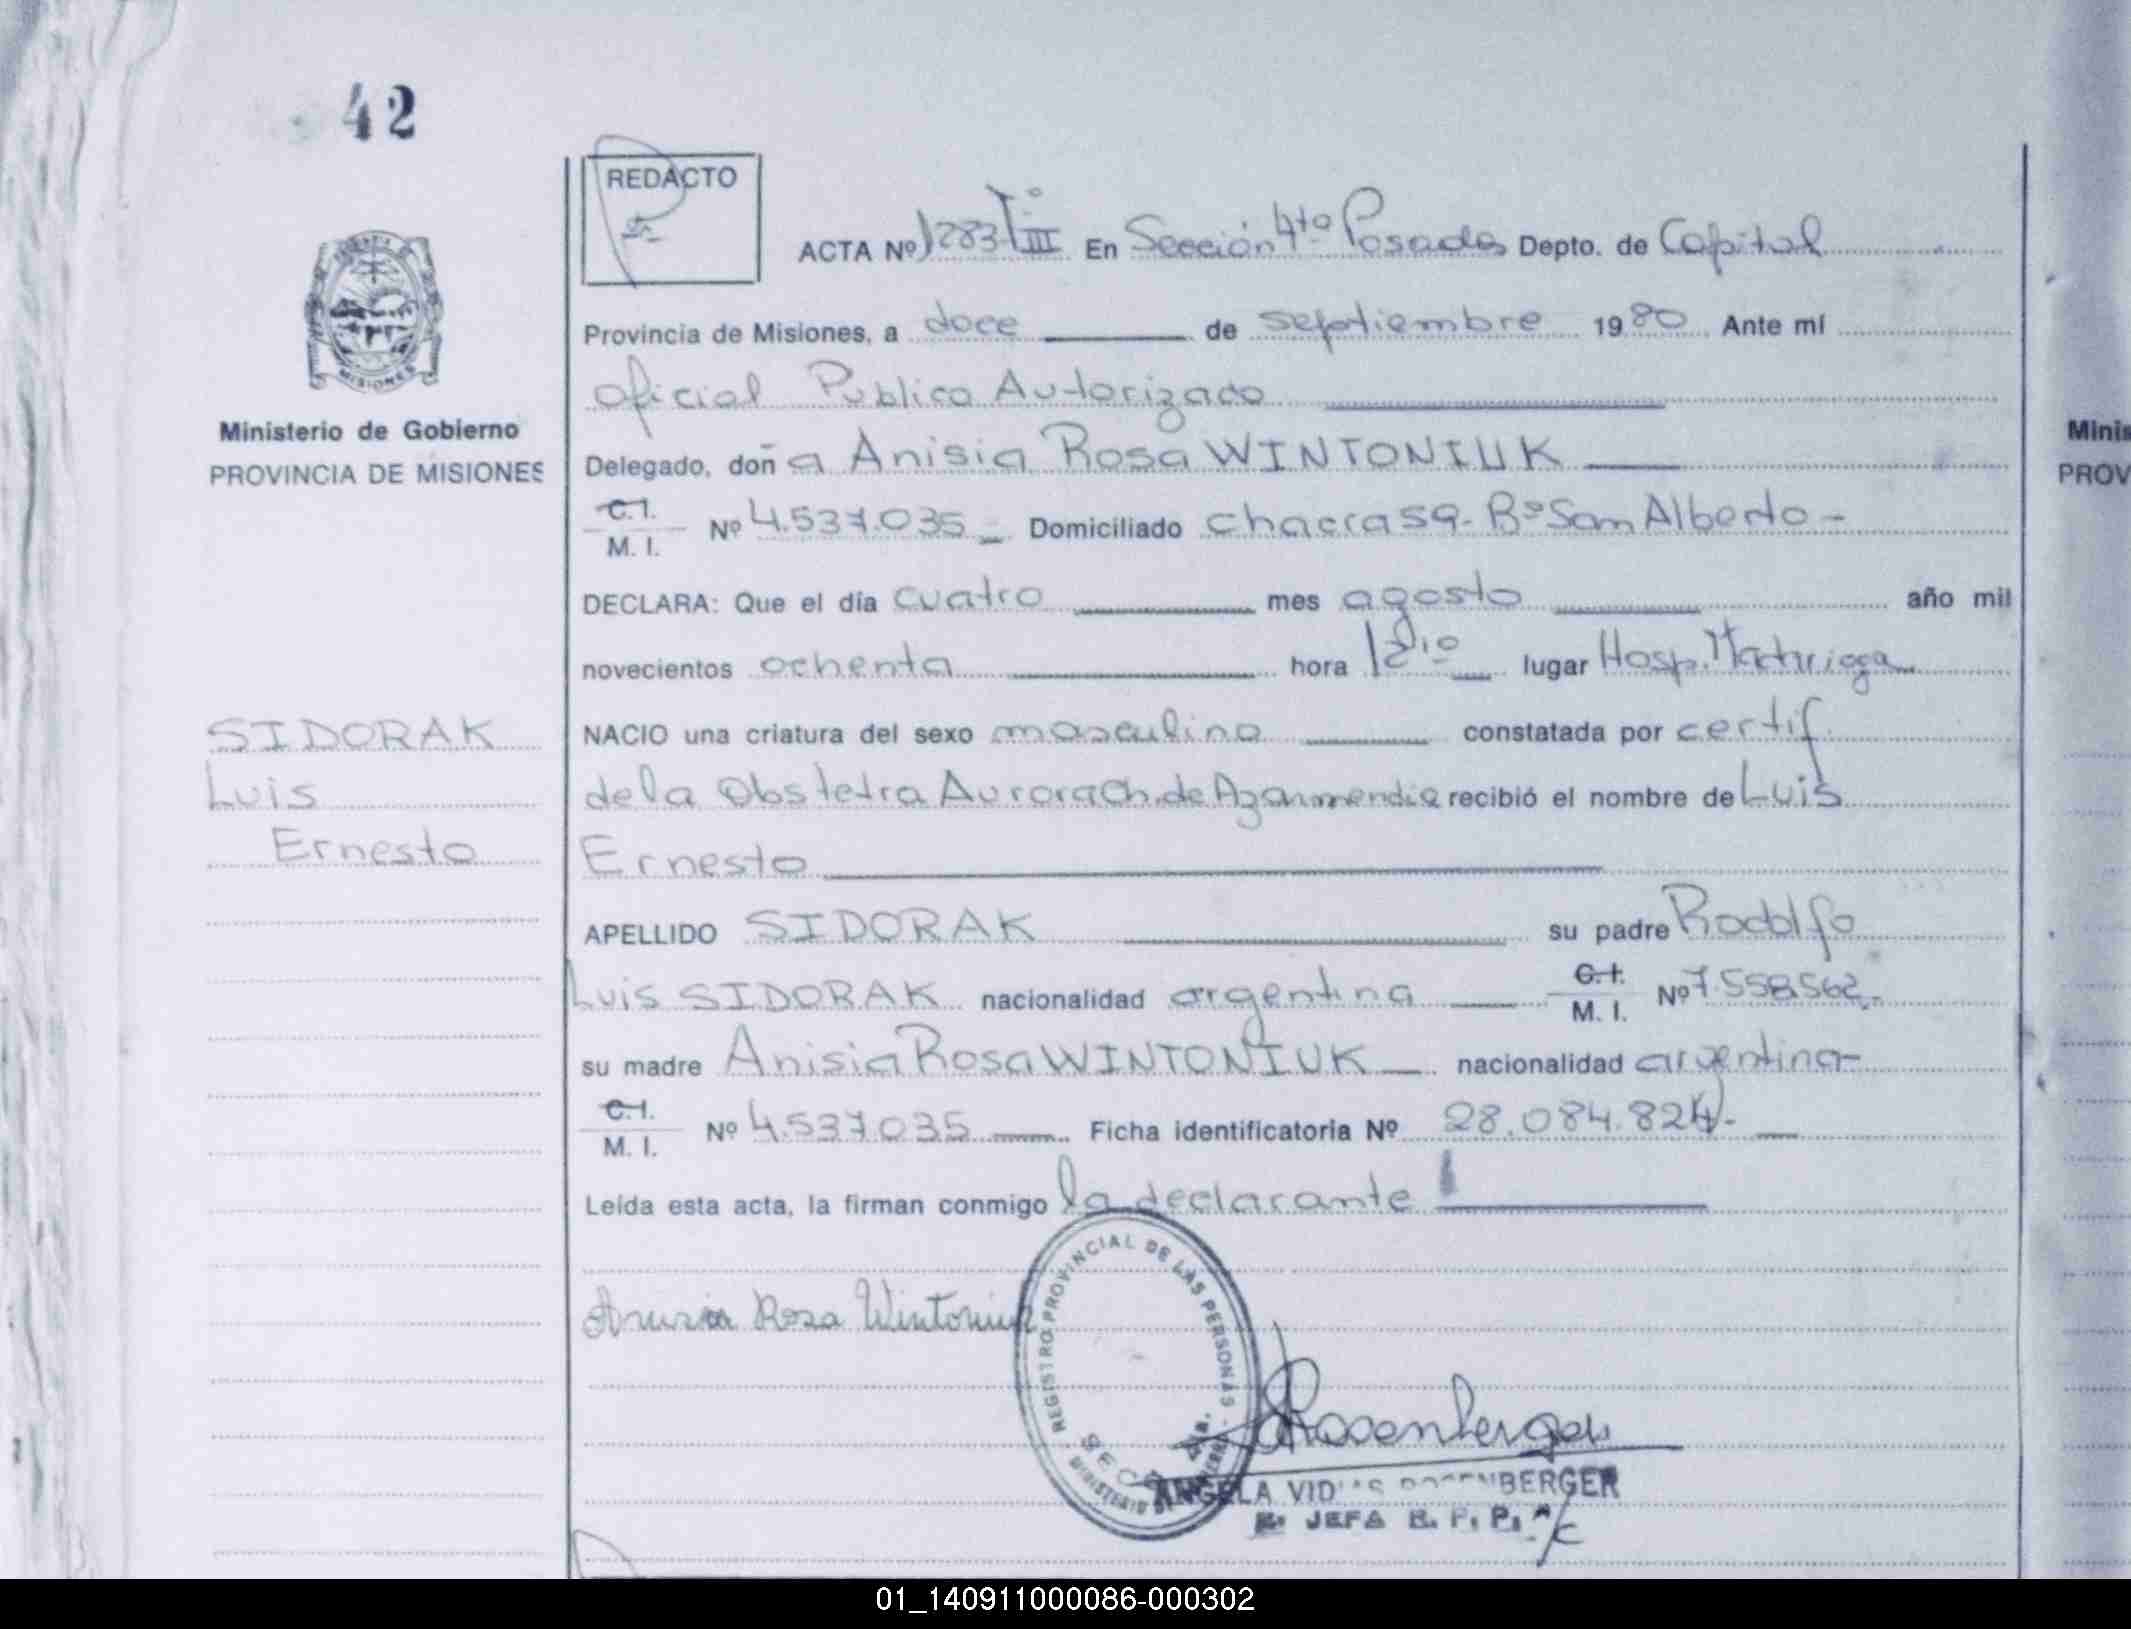 42
REDACTO
ACTA Nº 1283 Tº III En Sección 4ta Posadas Depto. de Capital
Provincia de Misiones, a doce de septiembre 1980 Ante mí
oficial Publico Autorizado
Ministerio de Gobierno
PROVINCIA DE MISIONES
Delegado, doña Anisia Rosa WINTONIUK
C.I. M. I. Nº 4.537.035 Domiciliado chacra 59- Bº San Alberto-
DECLARA: Que el día cuatro mes agosto año mil
novecientos ochenta hora 12 10 lugar Hosp.
SIDORAK
Luis
Ernesto
NACIO una criatura del sexo masculino constatada por certif.
de la Obstetra Aurora Ch. de Azarmendia recibió el nombre de Luis
Ernesto
APELLIDO SIDORAK su padre Rodolfo
Luis SIDORAK nacionalidad argentina C.I. M. I. Nº 7.558.562.-
su madre Anisia Rosa WINTONIUK nacionalidad argentina-
C.I. M. I. Nº 4.537.035 Ficha identificatoria Nº 28.084.824-
Leída esta acta, la firman conmigo la declarante
Anisia Rosa Wintoniuk
REGISTRO PROVINCIAL DE LAS PERSONAS
MINISTERIO DE
Rosenberger
ANGELA ROSENBERGER
JEFA R. P. P.
Minis
PROV
01_140911000086-000302